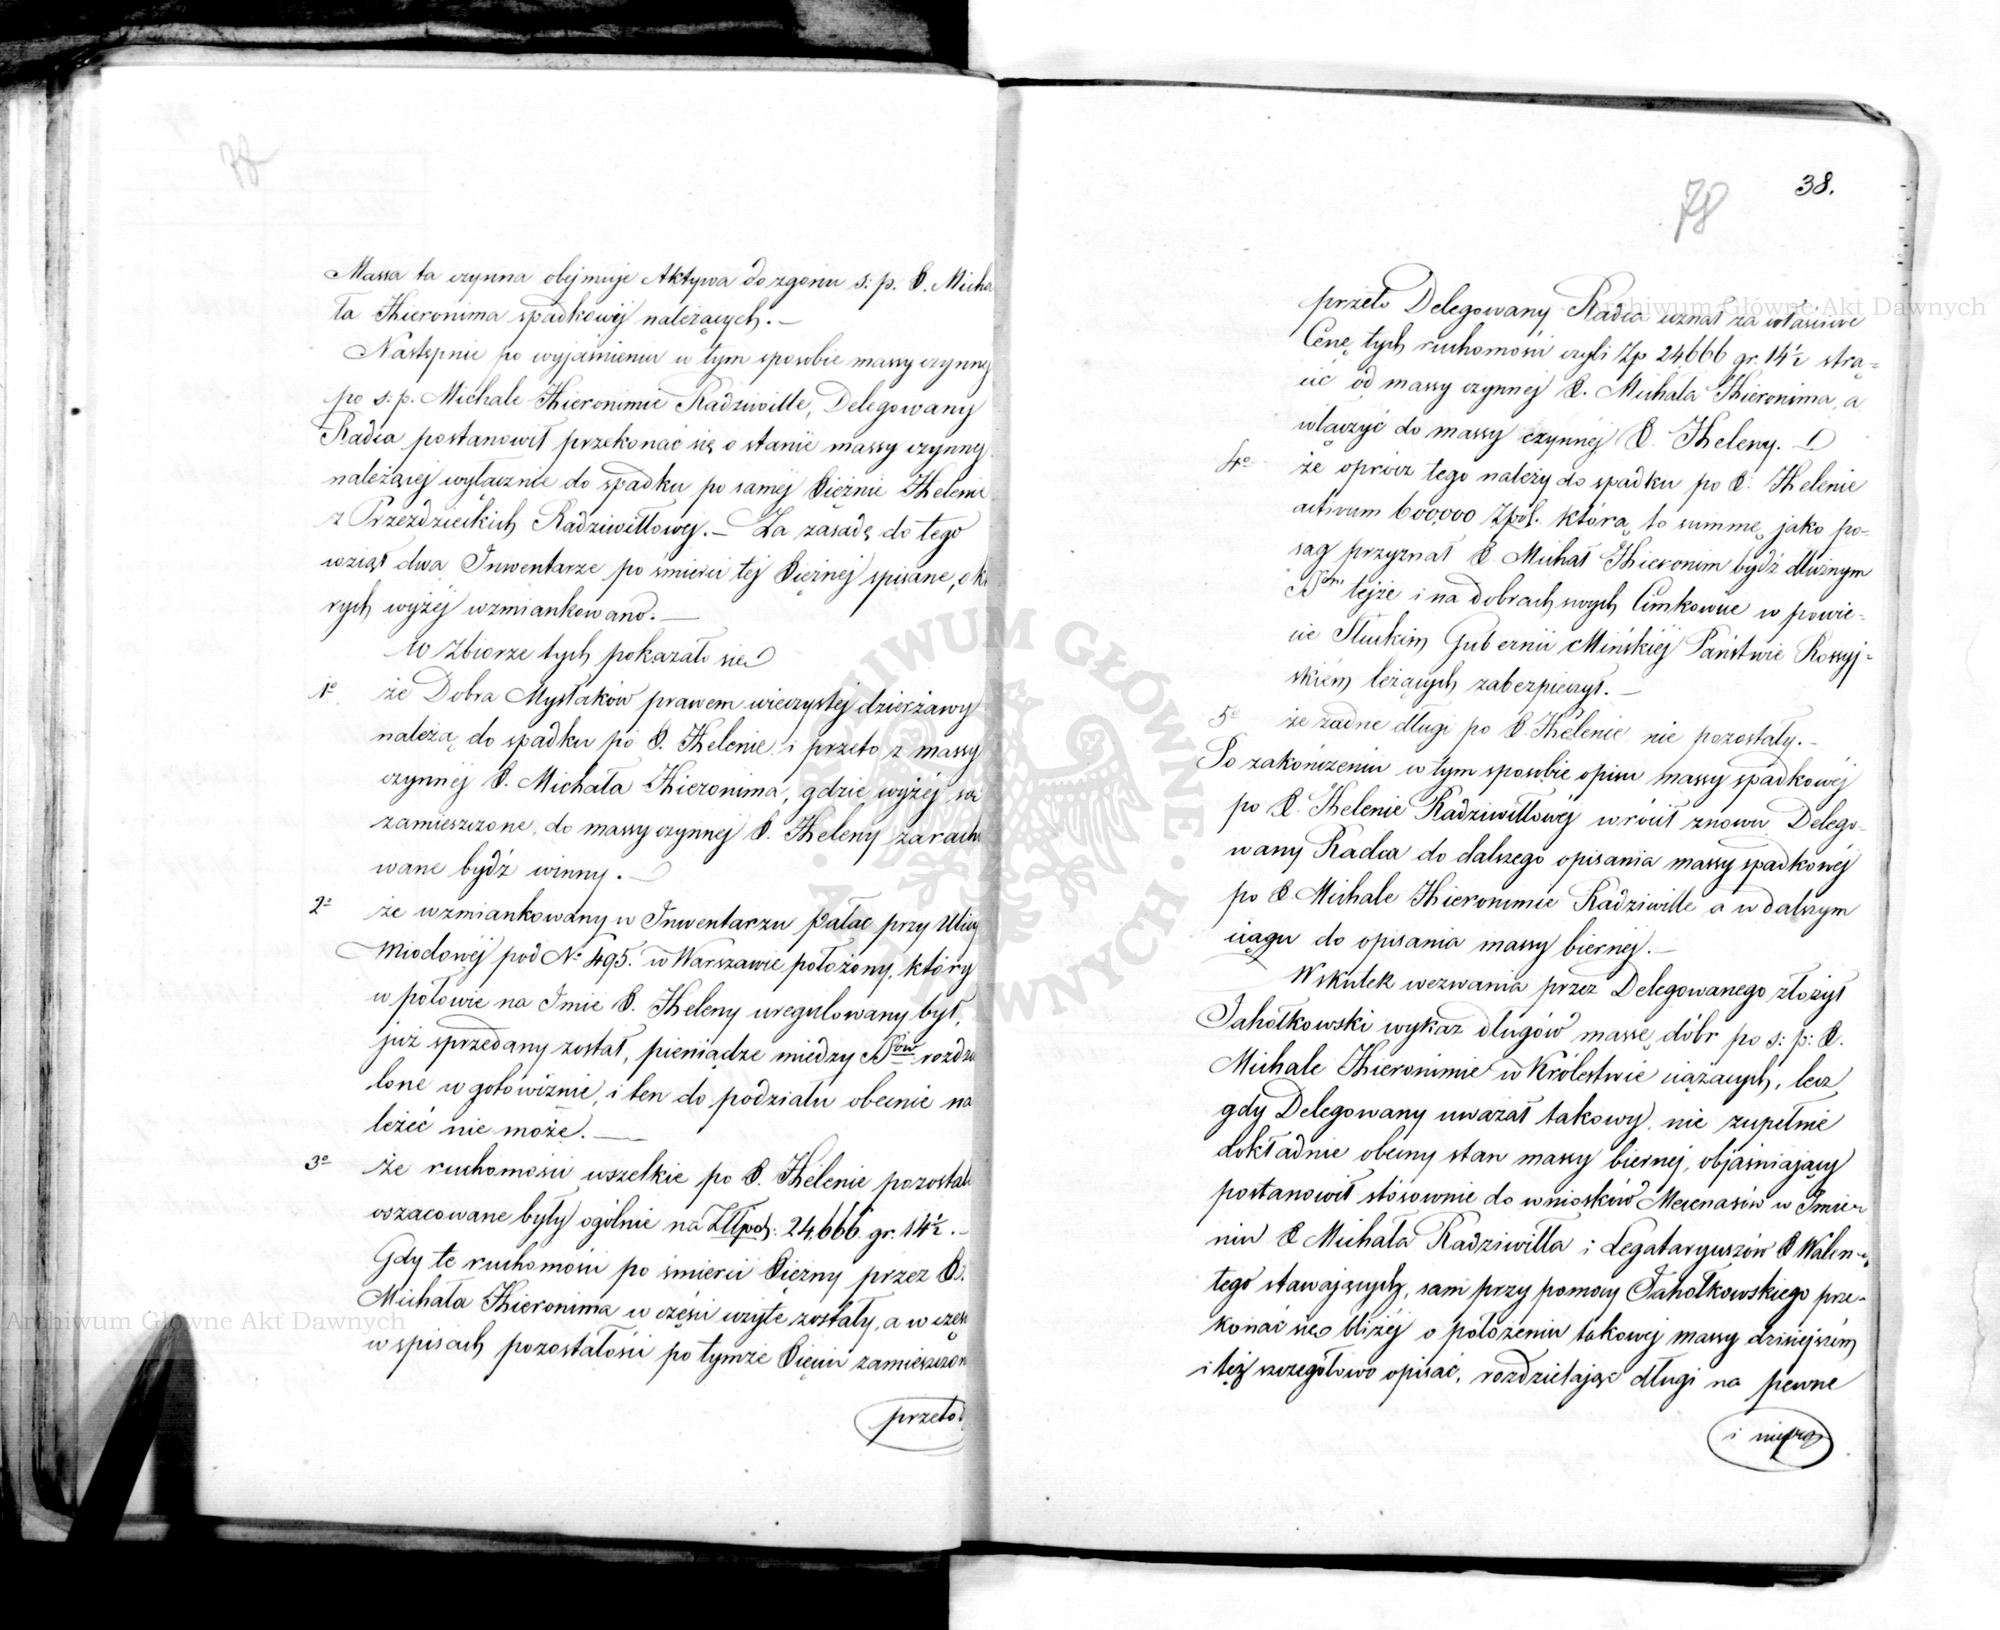 Massa ta czynna obejmuje Aktywa do zgonu s: p. X. Micha
ła Hieronima spadkowéj należących. —
Następnie po wyjaśnieniu w tym sposobie massy czynnej
po s: p. Michale Hieronimie Radziwille, Delegowany
Radca postanowił przekonać się o stanie massy czynnej
należącej wyłącznie do spadku po samej Xiężnie Helenie
z Przezdzieckich Radziwiłłowej. — Za zasadę do tego
wziął dwa Inwentarze po śmierci tej Xiężnej spisane, o któ
rych wyżéj wzmiankowano. —
W zbiorze tych pokazało się
1o że Dobra Mysłaków prawem wieczystej dzierżawy
należą do spadku po X. Helenie i przeto z massy
czynnéj X. Michała Hieronima, gdzie wyżéj są
zamieszczone, do massy czynnej X. Heleny zaracho
wane bydź winny. —
2o że wzmiankowany w Inwentarzu Pałac przy Ulicy
Miodowéj pod No 495. w Warszawie położony, który
w połowie na Imie X. Heleny uregulowany był,
już sprzedany został, pieniądze miedzy Sów rozdzie
lone w gotowiznie, i ten do podziału obecnie na
leżéć nie może. —
3o że ruchomości wszelkie po X. Helenie pozostałe
oszacowane były ogólnie na Złłpol: 24,666 gr. 14½. —
Gdy te ruchomości po śmierci Xiężny przez X.
Michała Hieronima w części użyte zostały, a w części
w spisach pozostałości po tymże Xięciu zamieszczone
przeto
78
38.
78
przeto Delegowany Radca uznał za właściwe
Cenę tych ruchomości czyli Zp 24,666 gr. 14½ strą-
cić od massy czynnej X. Michała Hieronima, a
włączyć do massy czynnéj X. Heleny. —
4o że oprócz tego należy do spadku po X. Helenie
activum 600,000 Zpol. którą to summę, jako po-
sag przyznał X. Michał Hieronim bydź dłużnym
tejże i na dobrach swych Cimkowice w powie-
cie Słuckim Gubernii Mińskiéj Państwie Rossyj-
skiém leżących zabezpieczył. —
5o że żadne długi po X. Helenie nie pozostały. —
Po zakończeniu w tym sposobie opisu massy spadkowéj
po X. Helenie Radziwiłłowéj wrócił znowu Delego-
wany Radca do dalszego opisania massy spadkowéj
po X Michale Hieronimie Radziwille a w dalszym
ciągu do opisania massy biernéj. —
Wskutek wezwania przez Delegowanego złożył
Jahołkowski wykaz długów massę dóbr po s: p: X.
Michale Hieronimie w Królestwie ciążących, lecz
gdy Delegowany uważał takowy, nie zupełnie
dokładnie obecny stan massy biernéj, objaśniający
postanowił stósownie do wniosków Mecenasów w Imie-
niu X Michała Radziwiłła i Legataryuszów X Walen-
tego stawających, sam przy pomocy Jahołkowskiego prze-
konać się bliżéj o położeniu takowej massy dzisiejszém
i téż szczegółowo opisać, rozdzielając długi na pewne
Archiwum Główne Akt Dawnych
Archiwum Główne Akt Dawnych
ARCHIWUM GŁÓWNE AKT DAWNYCH